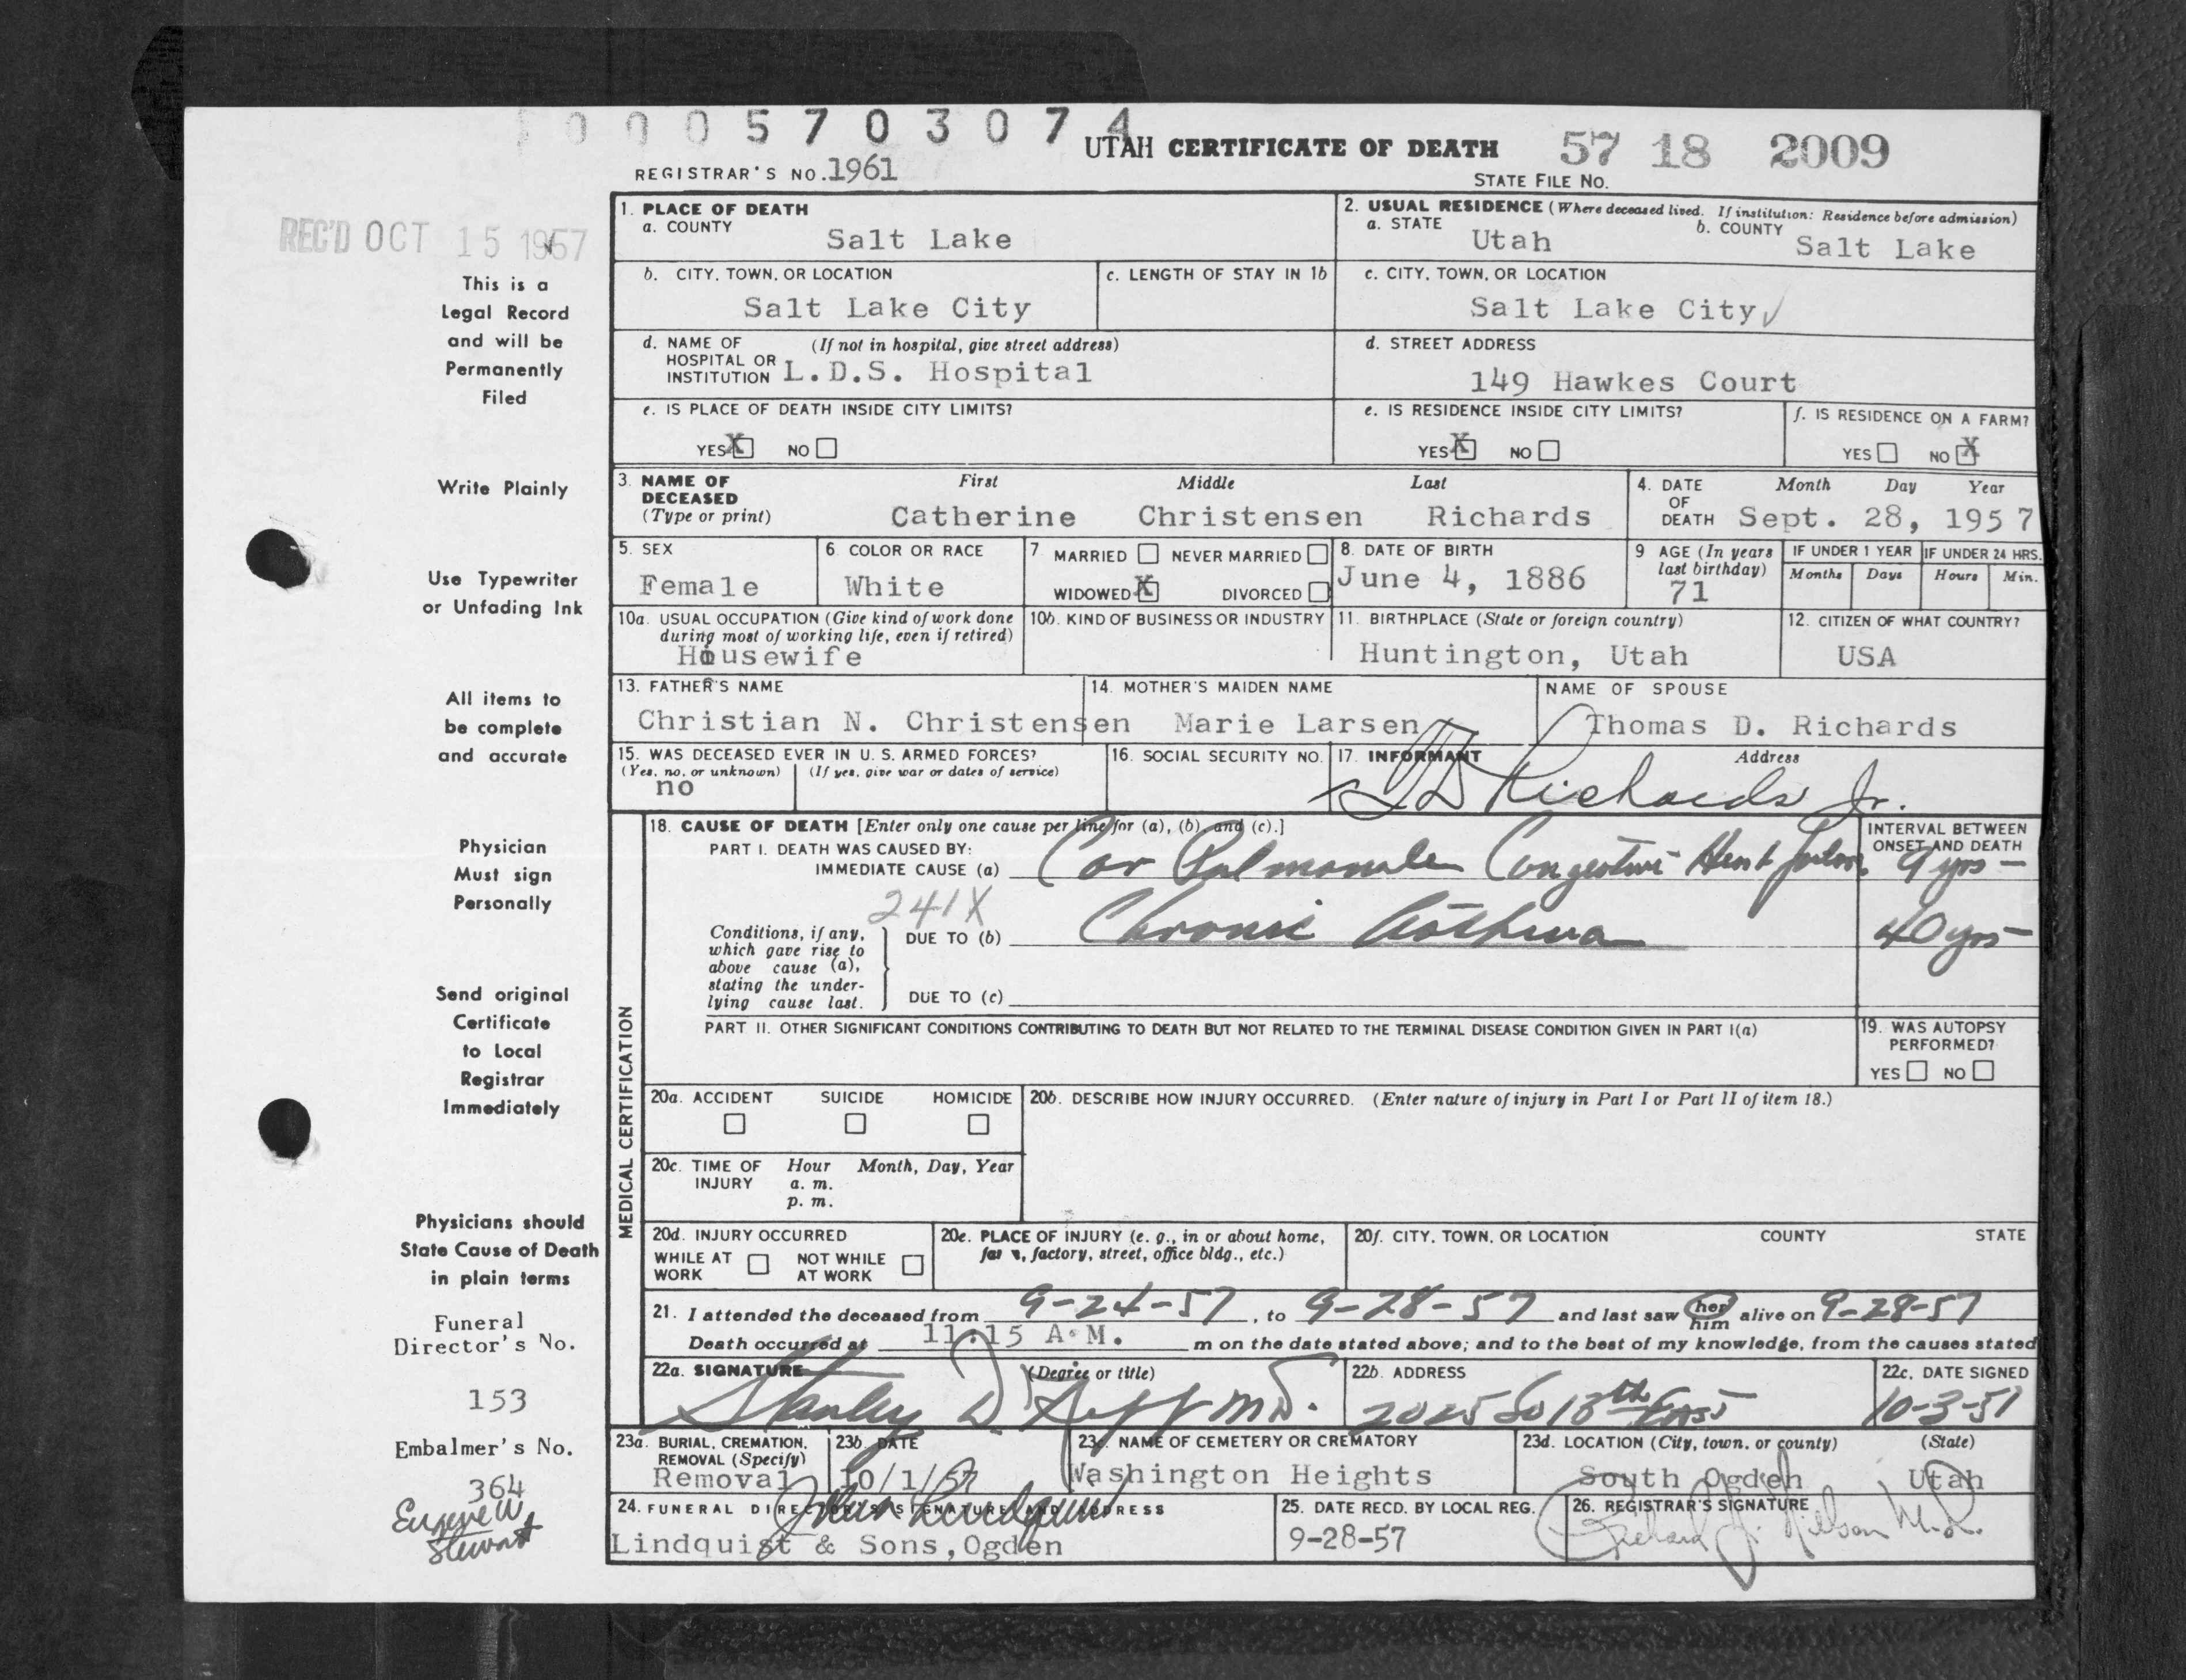 0 0 0 5 7 0 3 0 7 4
UTAH CERTIFICATE OF DEATH 57 18 2009
REGISTRAR'S NO. 1961
STATE FILE NO.
REC'D OCT 15 1957
This is a
Legal Record
and will be
Permanently
Filed
Write Plainly
Use Typewriter
or Unfading Ink
All items to
be complete
and accurate
Physician
Must sign
Personally
Send original
Certificate
to Local
Registrar
Immediately
Physicians should
State Cause of Death
in plain terms
Funeral
Director's No.
153
Embalmer's No.
364
Eugene W.
Stewart
1. PLACE OF DEATH
a. COUNTY
Salt Lake
2. USUAL RESIDENCE (Where deceased lived. If institution: Residence before admission)
a. STATE Utah b. COUNTY Salt Lake
b. CITY, TOWN, OR LOCATION
Salt Lake City
c. LENGTH OF STAY IN 1b
c. CITY, TOWN, OR LOCATION
Salt Lake City ✓
d. NAME OF HOSPITAL OR INSTITUTION (If not in hospital, give street address)
L.D.S. Hospital
d. STREET ADDRESS
149 Hawkes Court
e. IS PLACE OF DEATH INSIDE CITY LIMITS?
YES X NO
e. IS RESIDENCE INSIDE CITY LIMITS?
YES X NO
f. IS RESIDENCE ON A FARM?
YES NO X
3. NAME OF DECEASED (Type or print)
First Middle Last
Catherine Christensen Richards
4. DATE OF DEATH Month Day Year
Sept. 28, 1957
5. SEX
Female
6. COLOR OR RACE
White
7. MARRIED NEVER MARRIED
WIDOWED X DIVORCED
8. DATE OF BIRTH
June 4, 1886
9. AGE (In years last birthday)
71
IF UNDER 1 YEAR IF UNDER 24 HRS.
Months Days Hours Min.
10a. USUAL OCCUPATION (Give kind of work done during most of working life, even if retired)
Housewife
10b. KIND OF BUSINESS OR INDUSTRY
11. BIRTHPLACE (State or foreign country)
Huntington, Utah
12. CITIZEN OF WHAT COUNTRY?
USA
13. FATHER'S NAME
Christian N. Christensen
14. MOTHER'S MAIDEN NAME
Marie Larsen
NAME OF SPOUSE
Thomas D. Richards
15. WAS DECEASED EVER IN U. S. ARMED FORCES?
(Yes, no, or unknown) (If yes, give war or dates of service)
no
16. SOCIAL SECURITY NO.
17. INFORMANT Address
T D Richards Jr.
MEDICAL CERTIFICATION
18. CAUSE OF DEATH [Enter only one cause per line for (a), (b), and (c).]
PART I. DEATH WAS CAUSED BY:
IMMEDIATE CAUSE (a) Cor Pulmonale Congestive Heart Failure
INTERVAL BETWEEN ONSET AND DEATH
9 yrs
241X
Conditions, if any, which gave rise to above cause (a), stating the underlying cause last.
DUE TO (b) Chronic Asthma 40 yrs
DUE TO (c)
PART II. OTHER SIGNIFICANT CONDITIONS CONTRIBUTING TO DEATH BUT NOT RELATED TO THE TERMINAL DISEASE CONDITION GIVEN IN PART I(a)
19. WAS AUTOPSY PERFORMED?
YES NO
20a. ACCIDENT SUICIDE HOMICIDE
20b. DESCRIBE HOW INJURY OCCURRED. (Enter nature of injury in Part I or Part II of item 18.)
20c. TIME OF INJURY Hour Month, Day, Year
a. m.
p. m.
20d. INJURY OCCURRED
WHILE AT WORK NOT WHILE AT WORK
20e. PLACE OF INJURY (e. g., in or about home, farm, factory, street, office bldg., etc.)
20f. CITY, TOWN, OR LOCATION COUNTY STATE
21. I attended the deceased from 9-24-57, to 9-28-57 and last saw her him alive on 9-28-57
Death occurred at 11:15 A.M. m on the date stated above; and to the best of my knowledge, from the causes stated
22a. SIGNATURE (Degree or title)
Stanley D. Neff M.D.
22b. ADDRESS
2025 So 13th East
22c. DATE SIGNED
10-3-57
23a. BURIAL, CREMATION, REMOVAL (Specify)
Removal
23b. DATE
10/1/57
23c. NAME OF CEMETERY OR CREMATORY
Washington Heights
23d. LOCATION (City, town, or county) (State)
South Ogden Utah
24. FUNERAL DIRECTOR'S SIGNATURE AND ADDRESS
John Lindquist
Lindquist & Sons, Ogden
25. DATE RECD. BY LOCAL REG.
9-28-57
26. REGISTRAR'S SIGNATURE
Richard J. Nilson M.D.